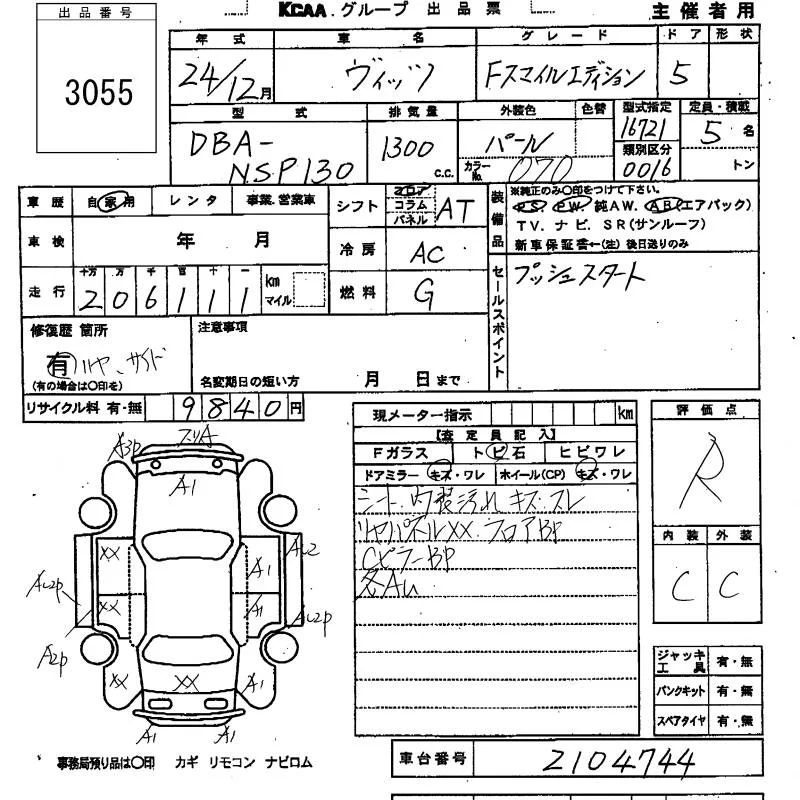 出品番号
3055
KCAA.グループ 出品票
主催者用
年式 車名 グレード ドア 形状
24/12月 ヴィッツ Fスマイルエディション 5
型式 排気量 外装色 色替 型式指定 定員・積載
DBA-NSP130 1300 c.c. パール 16721 5名
カラーNo. 070 類別区分 0016 トン
車歴 自家用 レンタ 事業.営業車
シフト フロア コラム パネル AT
装備品
※純正のみ○印をつけて下さい。
PS. PW. 純AW. AB(エアバック)
TV. ナビ. SR(サンルーフ)
新車保証書←(注)後日送りのみ
車検 年 月
冷房 AC
走行 十万 万 千 百 十 一
206111 km マイル
燃料 G
セールスポイント
プッシュスタート
修復歴 箇所
有 リヤ、サイド
(有の場合は○印を)
注意事項
名変期日の短い方 月 日まで
リサイクル料 有・無 9840円
現メーター指示 km
【査定員記入】
Fガラス トビ石 ヒビワレ
ドアミラー キズ・ワレ ホイール(CP) キズ・ワレ
シート、内装汚れ キズ・スレ
リヤパネルXX フロアBP
CピラーBP
各AU
評価点
R
内装 外装
C C
ジャッキ工具 有・無
パンクキット 有・無
スペアタイヤ 有・無
A3P スリA
A1
XX A1 AU2
AU2P XX A1 AU2P
A2P
XX XX A1
A1 A1
事務局預り品は○印 カギ リモコン ナビロム
車台番号 2104744